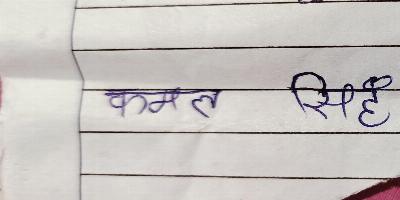 कमल सिंह